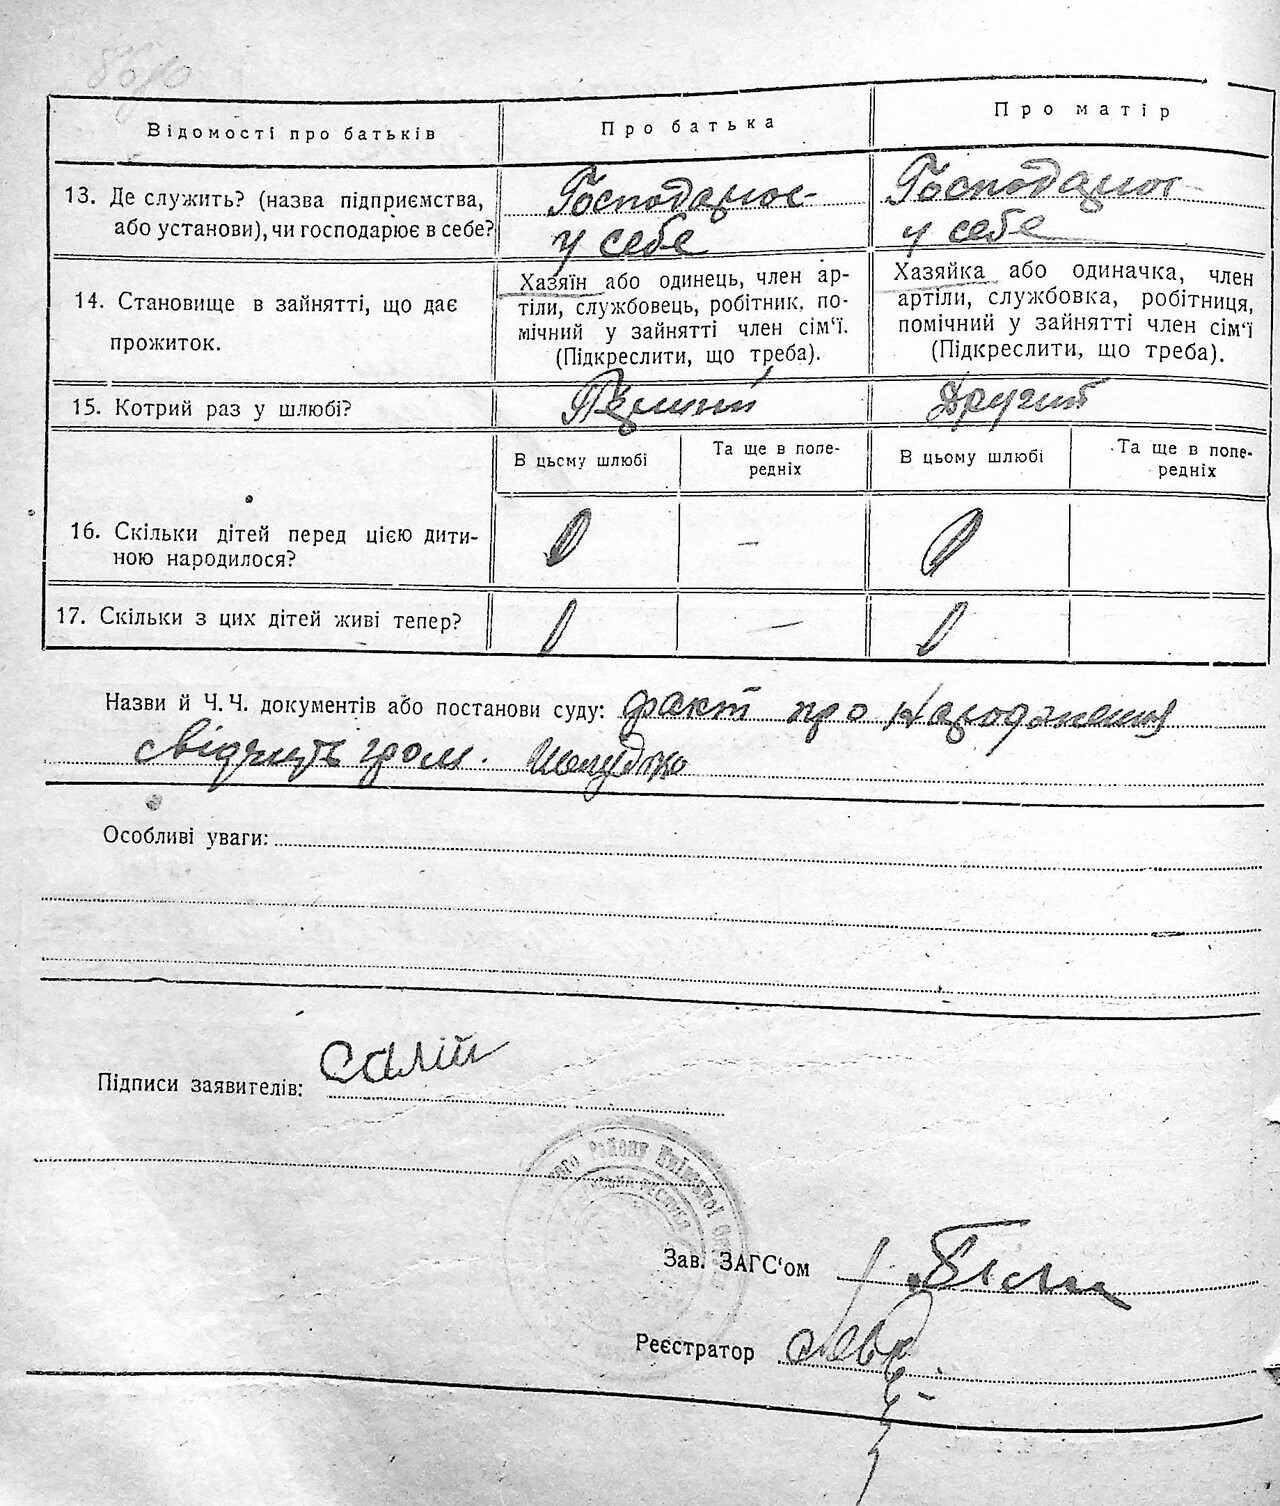 Відомості про батьків
Про батька
Про матір
13. Де служить? (назва підприємства,
або установи), чи господарює в себе?
Господарює
у себе
Господарює
у себе
14. Становище в зайнятті, що дає
прожиток.
Хазяїн або одинець, член ар-
тіли, службовець, робітник, по-
мічний у зайнятті член сім'ї.
(Підкреслити, що треба).
Хазяйка або одиначка, член
артіли, службовка, робітниця,
помічний у зайнятті член сім'ї
(Підкреслити, що треба).
15. Котрий раз у шлюбі?
Перший
Другий
В цьому шлюбі
Та ще в попе-
редніх
В цьому шлюбі
Та ще в попе-
редніх
16. Скільки дітей перед цією дити-
ною народилося?
0
—
0
17. Скільки з цих дітей живі тепер?
0
—
0
Назви й Ч. Ч. документів або постанови суду: факт про народження
свідчить гром.
Особливі уваги:
Підписи заявителів: Салій
Району Київської
Зав. ЗАГС'ом
Реєстратор